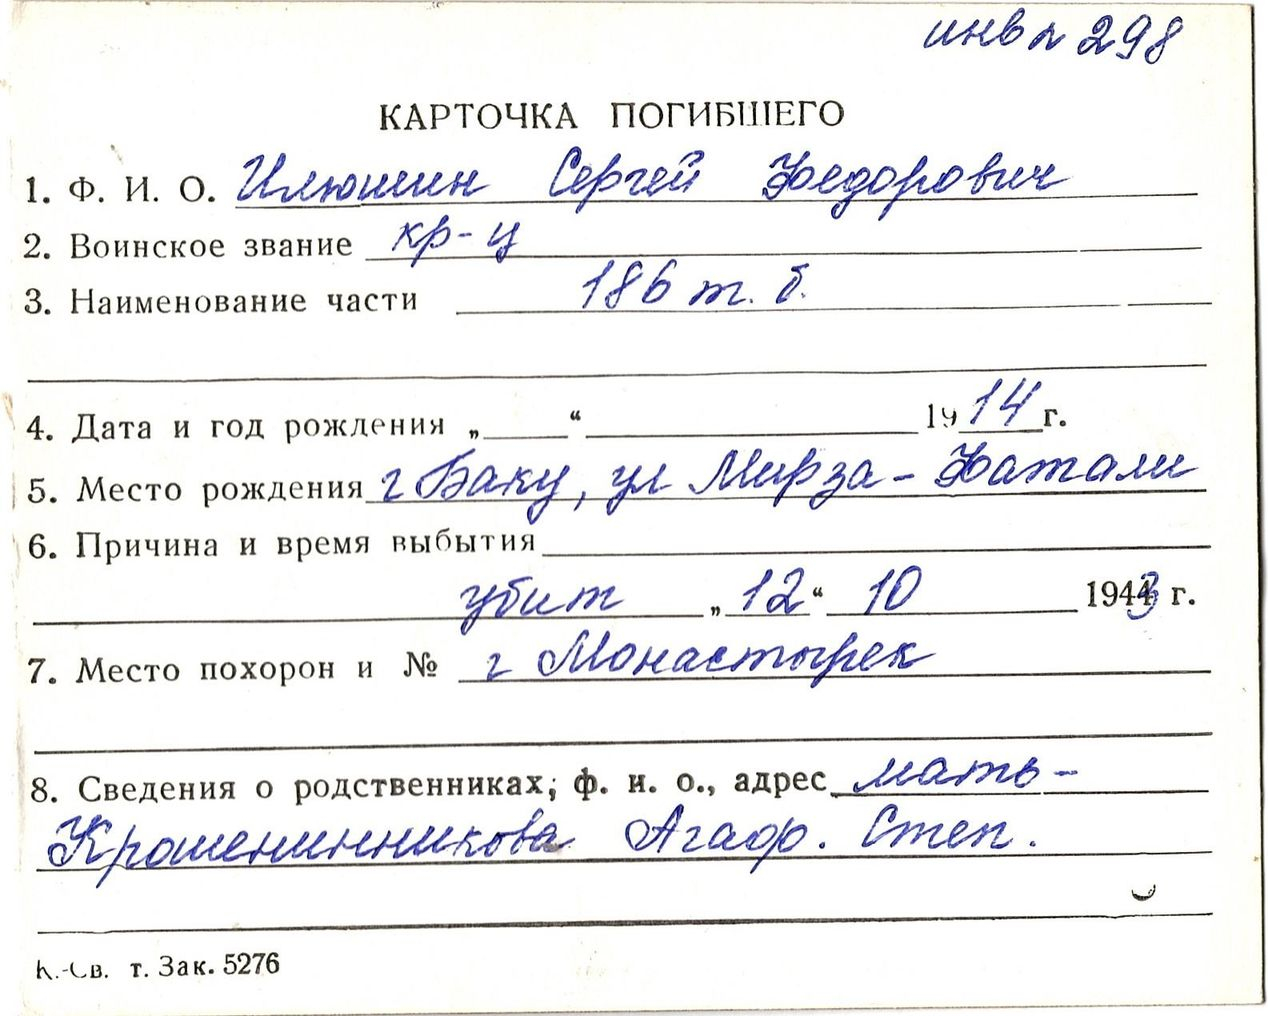 инв № 298
КАРТОЧКА ПОГИБШЕГО
1. Ф. И. О. Илюшин Сергей Федорович
2. Воинское звание кр-ц
3. Наименование части 186 т. б.
4. Дата и год рождения „ “ 1914 г.
5. Место рождения г Баку, ул Мирза - Фатали
6. Причина и время выбытия
убит „12“ 10 1943 г.
7. Место похорон и № г Монастырек
8. Сведения о родственниках; ф. и. о., адрес мать -
Крошенинникова Агаф. Степ.
К.-Св. т. Зак. 5276